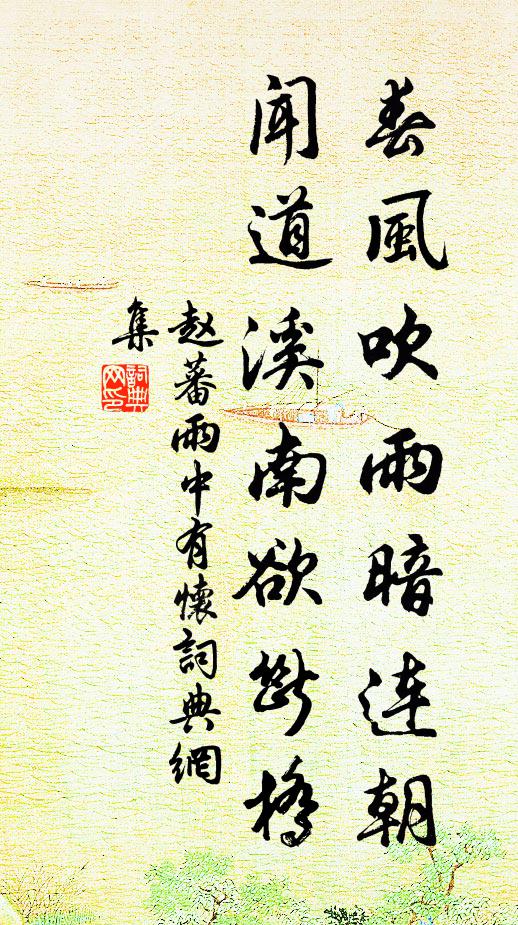 春風吹雨暗连朝
聞道溪南欲斷橋
赵蕃雨中有懷詞典網
集
詞典
网印